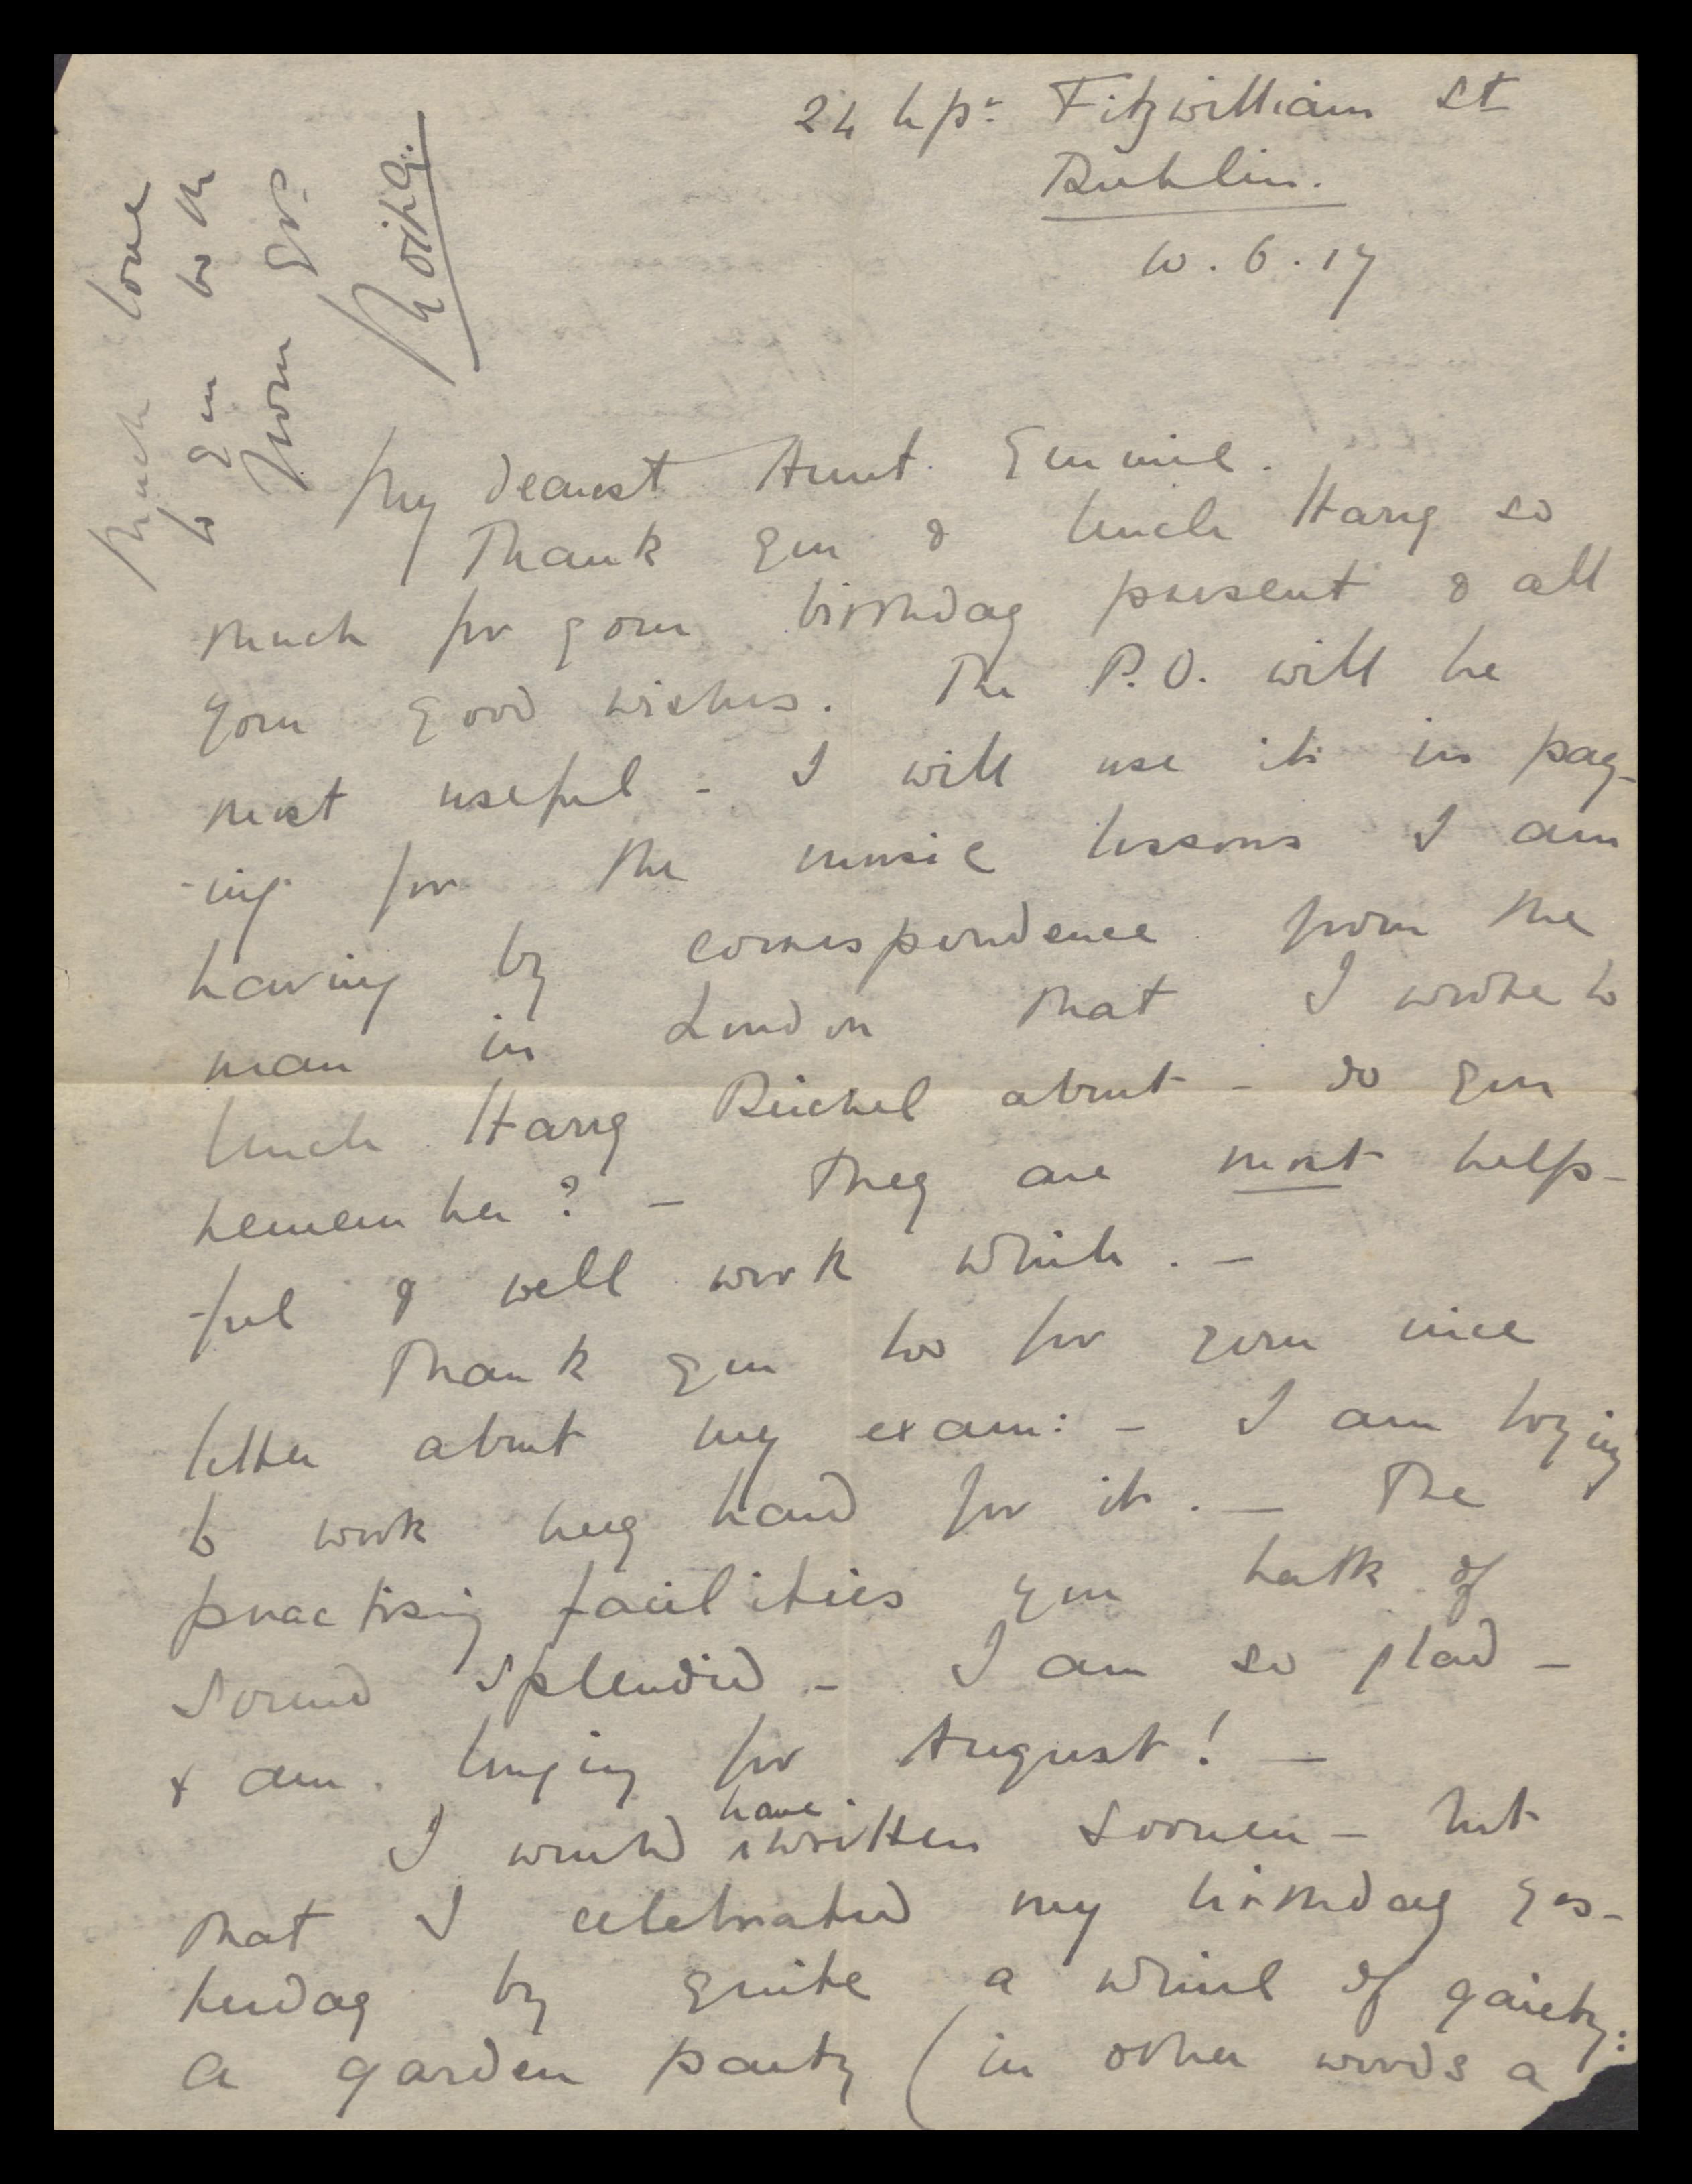 24 Upr. Fitzwilliam St
Dublin.
10.6.17
My dearest Aunt Emmie.
Thank you & Uncle Harry so
much for your birthday present & all
your good wishes. The P.O. will be
most useful - I will use it in pay-
-ing for the music lessons I am
having by correspondence from the
man in London that I wrote to
Uncle Harry Reichel about - do you
remember? - They are most help-
-ful & well work while. -
Thank you too for your nice
letter about my exam: - I am trying
to work very hard for it. - The
practising facilities you talk of
sound splendid - I am so glad -
& am longing for August! -
I would have written sooner - but
that I celebrated my birthday yes-
terday by quite a whirl of gaiety:
a garden party (in other words a
Much love
to you both
from yr.